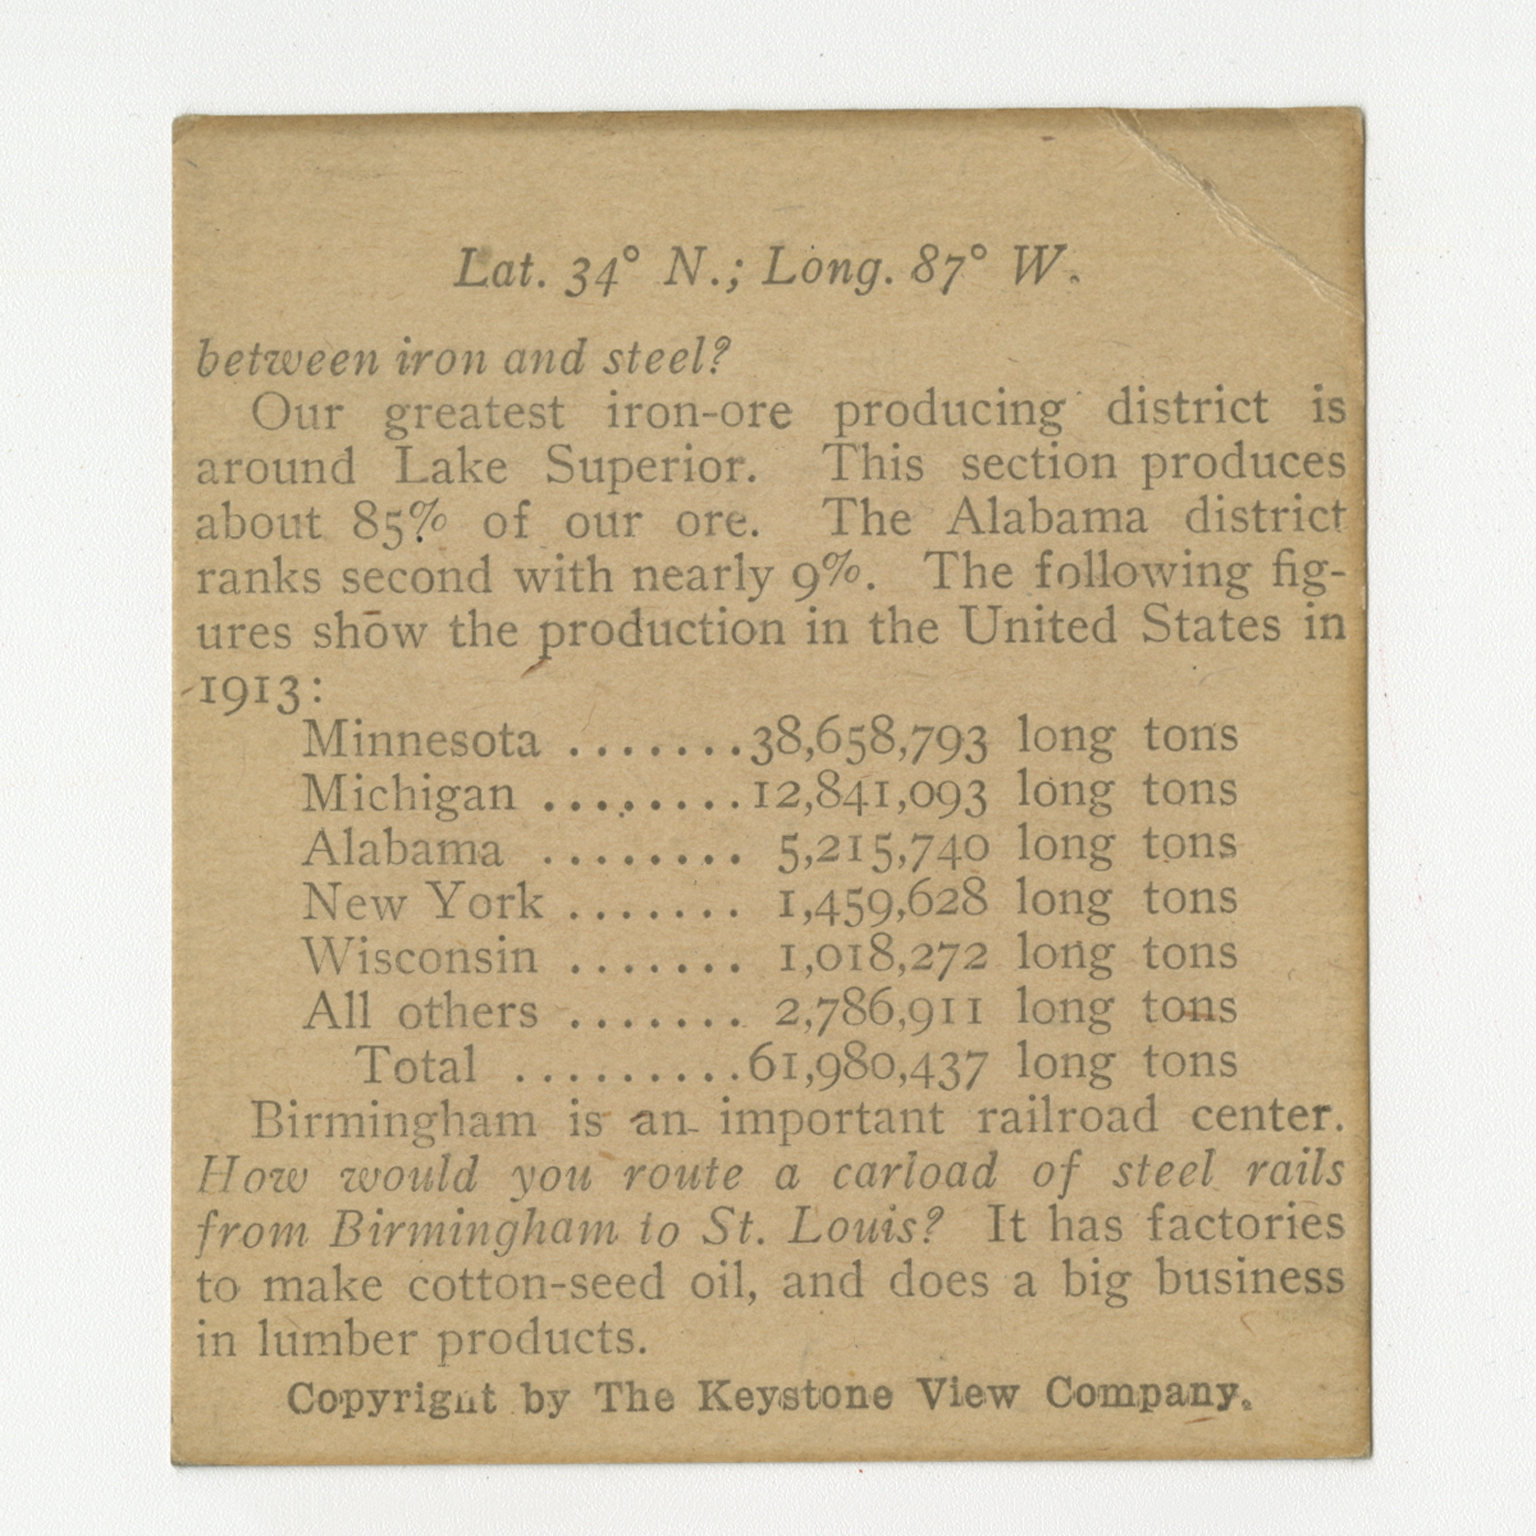 Lat. 34° N.; Long. 87° W.
between iron and steel?
Our greatest iron-ore producing district is
around Lake Superior. This section produces
about 85% of our ore. The Alabama district
ranks second with nearly 9%. The following fig-
ures show the production in the United States in
1913:
Minnesota .......38,658,793 long tons
Michigan ........12,841,093 long tons
Alabama ........ 5,215,740 long tons
New York ....... 1,459,628 long tons
Wisconsin ....... 1,018,272 long tons
All others ....... 2,786,911 long tons
Total .........61,980,437 long tons
Birmingham is an important railroad center.
How would you route a carload of steel rails
from Birmingham to St. Louis? It has factories
to make cotton-seed oil, and does a big business
in lumber products.
Copyright by The Keystone View Company.